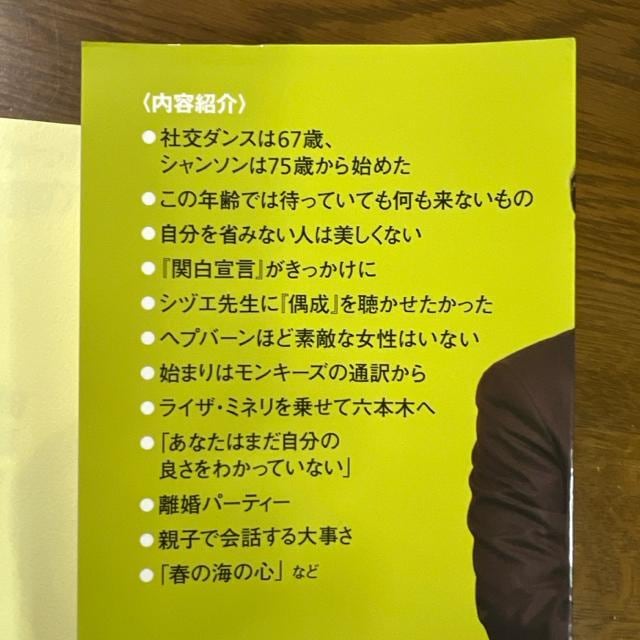 〈内容紹介〉
●社交ダンスは67歳、
シャンソンは75歳から始めた
●この年齢では待っていても何も来ないもの
●自分を省みない人は美しくない
●『関白宣言』がきっかけに
●シヅエ先生に『偶成』を聴かせたかった
●ヘプバーンほど素敵な女性はいない
●始まりはモンキーズの通訳から
●ライザ・ミネリを乗せて六本木へ
●「あなたはまだ自分の
良さをわかっていない」
●離婚パーティー
●親子で会話する大事さ
●「春の海の心」など